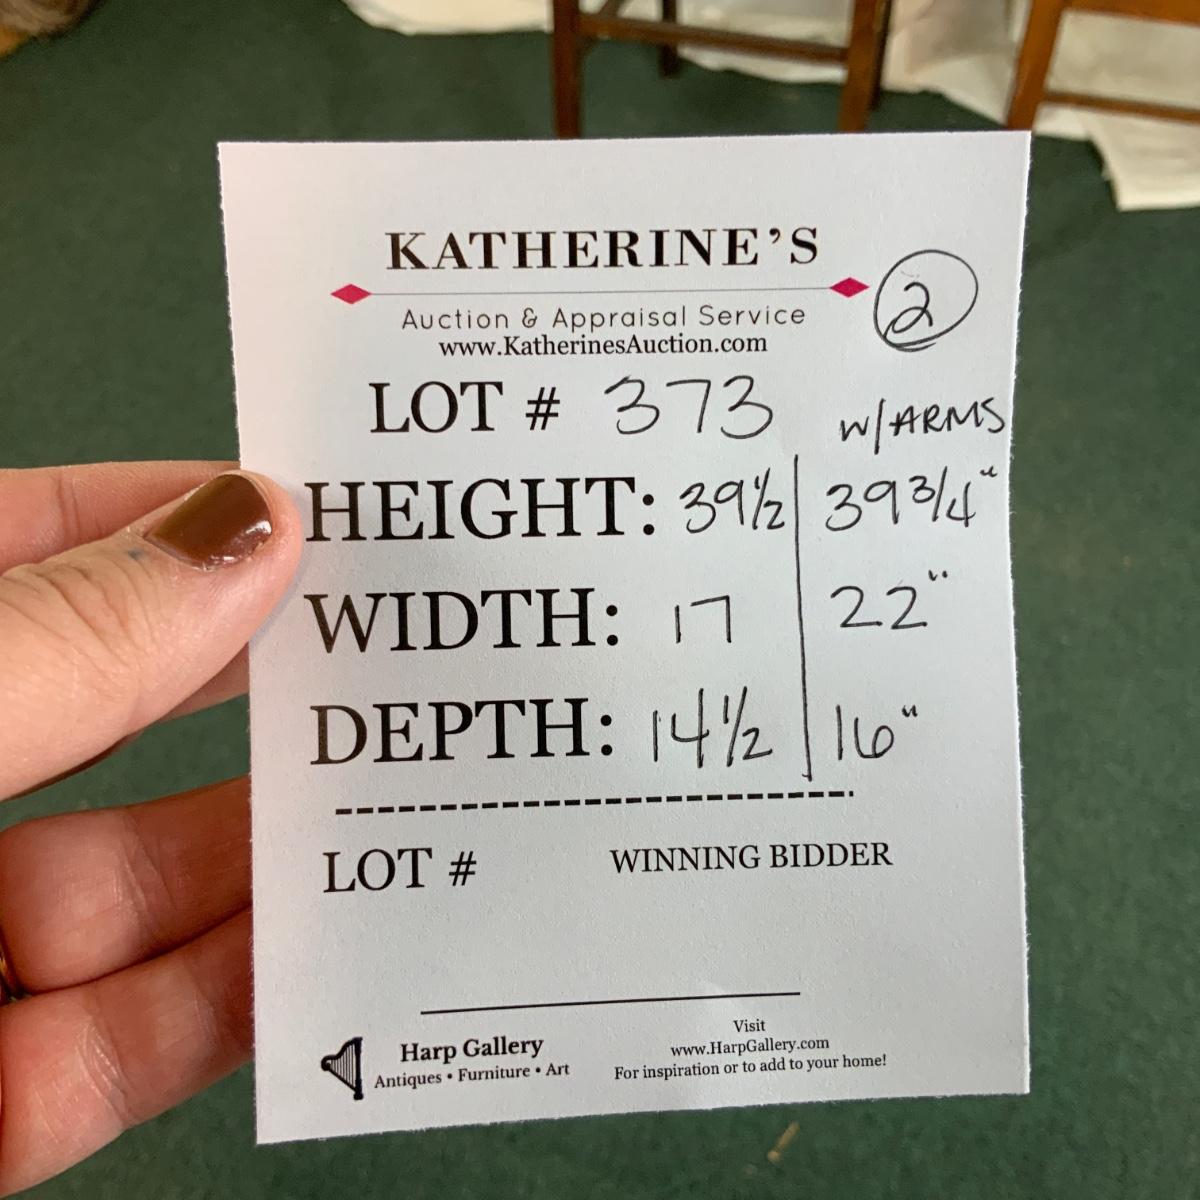 KATHERINE'S
Auction & Appraisal Service
www.KatherinesAuction.com
2
LOT # 373
W/ARMS
HEIGHT: 39 1/2 | 39 3/4"
WIDTH: 17 | 22"
DEPTH: 14 1/2 | 16"
LOT # WINNING BIDDER
Harp Gallery
Antiques • Furniture • Art
Visit
www.HarpGallery.com
For inspiration or to add to your home!